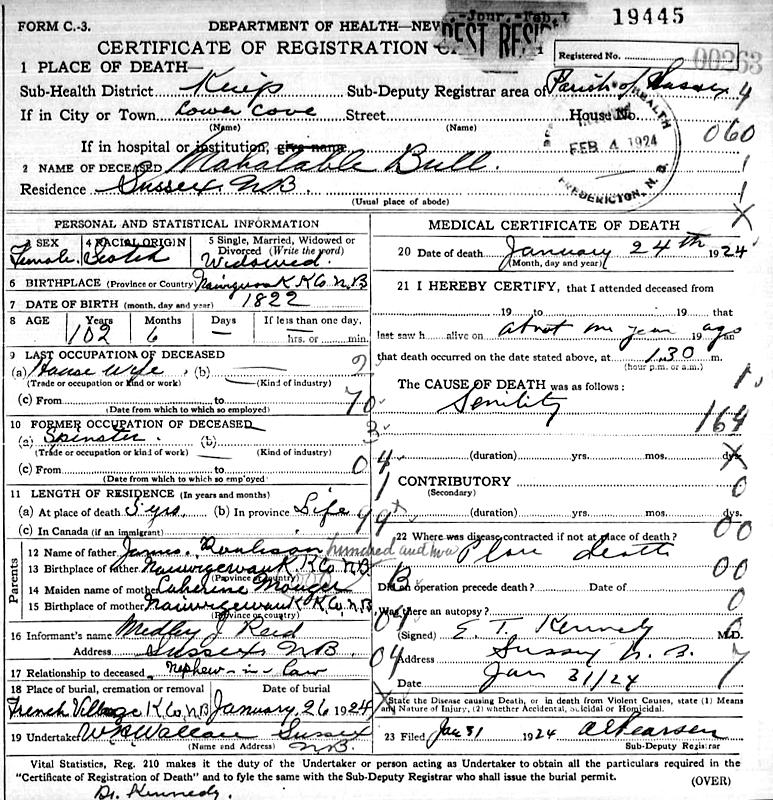 FORM C.-3.
DEPARTMENT OF HEALTH—NEW
19445
CERTIFICATE OF REGISTRATION OF
BEST RESI
Registered No. 00263
1 PLACE OF DEATH—
Sub-Health District Kings Sub-Deputy Registrar area of Parish of Sussex 4
If in City or Town Lower Cove Street House No.
(Name) (Name)
HEALTH FEB 4 1924 FREDERICTON, N. B.
If in hospital or institution, give name 060
2 NAME OF DECEASED Mahalable Bull. 1
Residence Sussex NB. 1
(Usual place of abode)
PERSONAL AND STATISTICAL INFORMATION
3 SEX 4 RACIAL ORIGIN 5 Single, Married, Widowed or
Divorced (Write the word)
Female. Scotch Widowed.
6 BIRTHPLACE (Province or Country) K Co. N B
7 DATE OF BIRTH (month, day and year) 1822
8 AGE Years Months Days If less than one day,
102 6 — hrs. or min.
9 LAST OCCUPATION OF DECEASED
(a) House wife (b)
(Trade or occupation or kind or work) (Kind of industry)
(c) From to 70
(Date from which to which so employed)
10 FORMER OCCUPATION OF DECEASED
(a) Spinster. (b) 3
(Trade or occupation or kind of work) (Kind of industry)
(c) From to 0 4
(Date from which to which so employed)
11 LENGTH OF RESIDENCE (In years and months)
(a) At place of death 5 yrs. (b) In province Life
(c) In Canada (if an immigrant)
Parents
12 Name of father James hundred and two
13 Birthplace of father Nauwigewauk K. Co. N B
(Province or Country)
14 Maiden name of mother Catherine
15 Birthplace of mother Nauwigewauk K. Co. N.B.
(Province or Country)
16 Informant's name Medley J Reid
Address Sussex NB. 04
17 Relationship to deceased Nephew-in-law
18 Place of burial, cremation or removal Date of burial
French Village K. Co, N B January 26 1924
19 Undertaker W Wallace Sussex
(Name and Address) N B.
MEDICAL CERTIFICATE OF DEATH
20 Date of death January 24th 1924
(Month, day and year)
21 I HEREBY CERTIFY, that I attended deceased from
19 to 19 that
last saw h alive on about one year 19 ago
that death occurred on the date stated above, at 1.30 m.
(hour p.m. or a.m.)
The CAUSE OF DEATH was as follows:
Senility 164
(duration) yrs. mos. dys.
CONTRIBUTORY 0
(Secondary)
(duration) yrs. mos. dys.
22 Where was disease contracted if not at place of death? 00
Place death
00
Did an operation precede death? Date of 0
Was there an autopsy?
(Signed) E. T. Kennedy M.D.
Address Sussex N. B. 7
Date Jan 31/24
State the Disease causing Death, or in death from Violent Causes, state (1) Means
and Nature of Injury, (2) whether Accidental, Suicidal or Homicidal.
23 Filed Jan 31 1924 Pearson
Sub-Deputy Registrar
Vital Statistics, Reg. 210 makes it the duty of the Undertaker or person acting as Undertaker to obtain all the particulars required in the
"Certificate of Registration of Death" and to fyle the same with the Sub-Deputy Registrar who shall issue the burial permit. (OVER)
Dr. Kennedy.